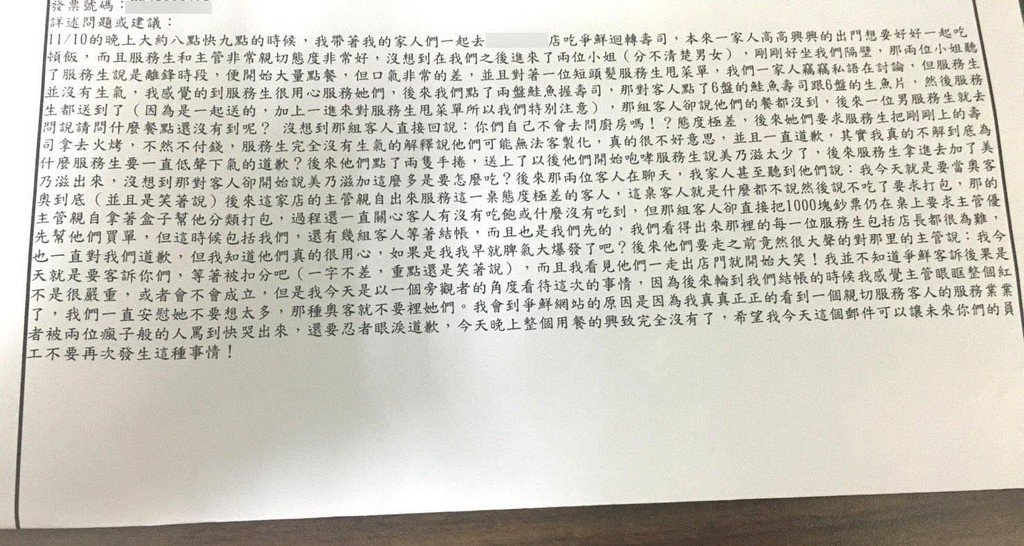 發票號碼：
詳述問題或建議：
11/10的晚上大約八點快九點的時候，我帶著我的家人們一起去 店吃爭鮮迴轉壽司，本來一家人高高興興的出門想要好好一起吃
頓飯，而且服務生和主管非常親切態度非常好，沒想到在我們之後進來了兩位小姐（分不清楚男女），剛剛好坐我們隔壁，那兩位小姐聽
了服務生說是離鋒時段，便開始大量點餐，但口氣非常的差，並且對著一位短頭髮服務生甩菜單，我們一家人竊竊私語在討論，但服務生
並沒有生氣，我感覺的到服務生很用心服務她們，後來我們點了兩盤鮭魚握壽司，那對客人點了6盤的鮭魚壽司跟6盤的生魚片，然後服務
生都送到了（因為是一起送的，加上一進來對服務生甩菜單所以我們特別注意），那組客人卻說他們的餐都沒到，後來一位男服務生就去
問說請問什麼餐點還沒有到呢？ 沒想到那組客人直接回說：你們自己不會去問廚房嗎！？態度極差，後來她們要求服務生把剛剛上的壽
司拿去火烤，不然不付錢，服務生完全沒有生氣的解釋說他們可能無法客製化，真的很不好意思，並且一直道歉，其實我真的不解到底為
什麼服務生要一直低聲下氣的道歉？後來他們點了兩隻手捲，送上了以後他們開始咆哮服務生說美乃滋太少了，後來服務生拿進去加了美
乃滋出來，沒想到那對客人卻開始說美乃滋加這麼多是要怎麼吃？後來那兩位客人在聊天，我家人甚至聽到他們說：我今天就是要當奧客
奧到底（並且是笑著說）後來這家店的主管親自出來服務這一桌態度極差的客人，這桌客人就是什麼都不說然後說不吃了要求打包，那的
主管親自拿著盒子幫他分類打包，過程還一直關心客人有沒有吃飽或什麼沒有吃到，但那組客人卻直接把1000塊鈔票仍在桌上要求主管優
先幫他們買單，但這時候包括我們，還有幾組客人等著結帳，而且也是我們先的，我們看得出來那裡的每一位服務生包括店長都很為難，
也一直對我們道歉，但我知道他們真的很用心，如果是我我早就脾氣大爆發了吧？後來他們要走之前竟然很大聲的對那里的主管說：我今
天就是要客訴你們，等著被扣分吧（一字不差，重點還是笑著說），而且我看見他們一走出店門就開始大笑！我並不知道爭鮮客訴後果是
不是很嚴重，或者會不會成立，但是我今天是以一個旁觀者的角度看待這次的事情，因為後來輪到我們結帳的時候我感覺主管眼眶整個紅
了，我們一直安慰她不要想太多，那種奧客就不要裡她們。我會到爭鮮網站的原因是因為我真真正正的看到一個親切服務客人的服務業業
者被兩位瘋子般的人罵到快哭出來，還要忍者眼淚道歉，今天晚上整個用餐的興致完全沒有了，希望我今天這個郵件可以讓未來你們的員
工不要再次發生這種事情！